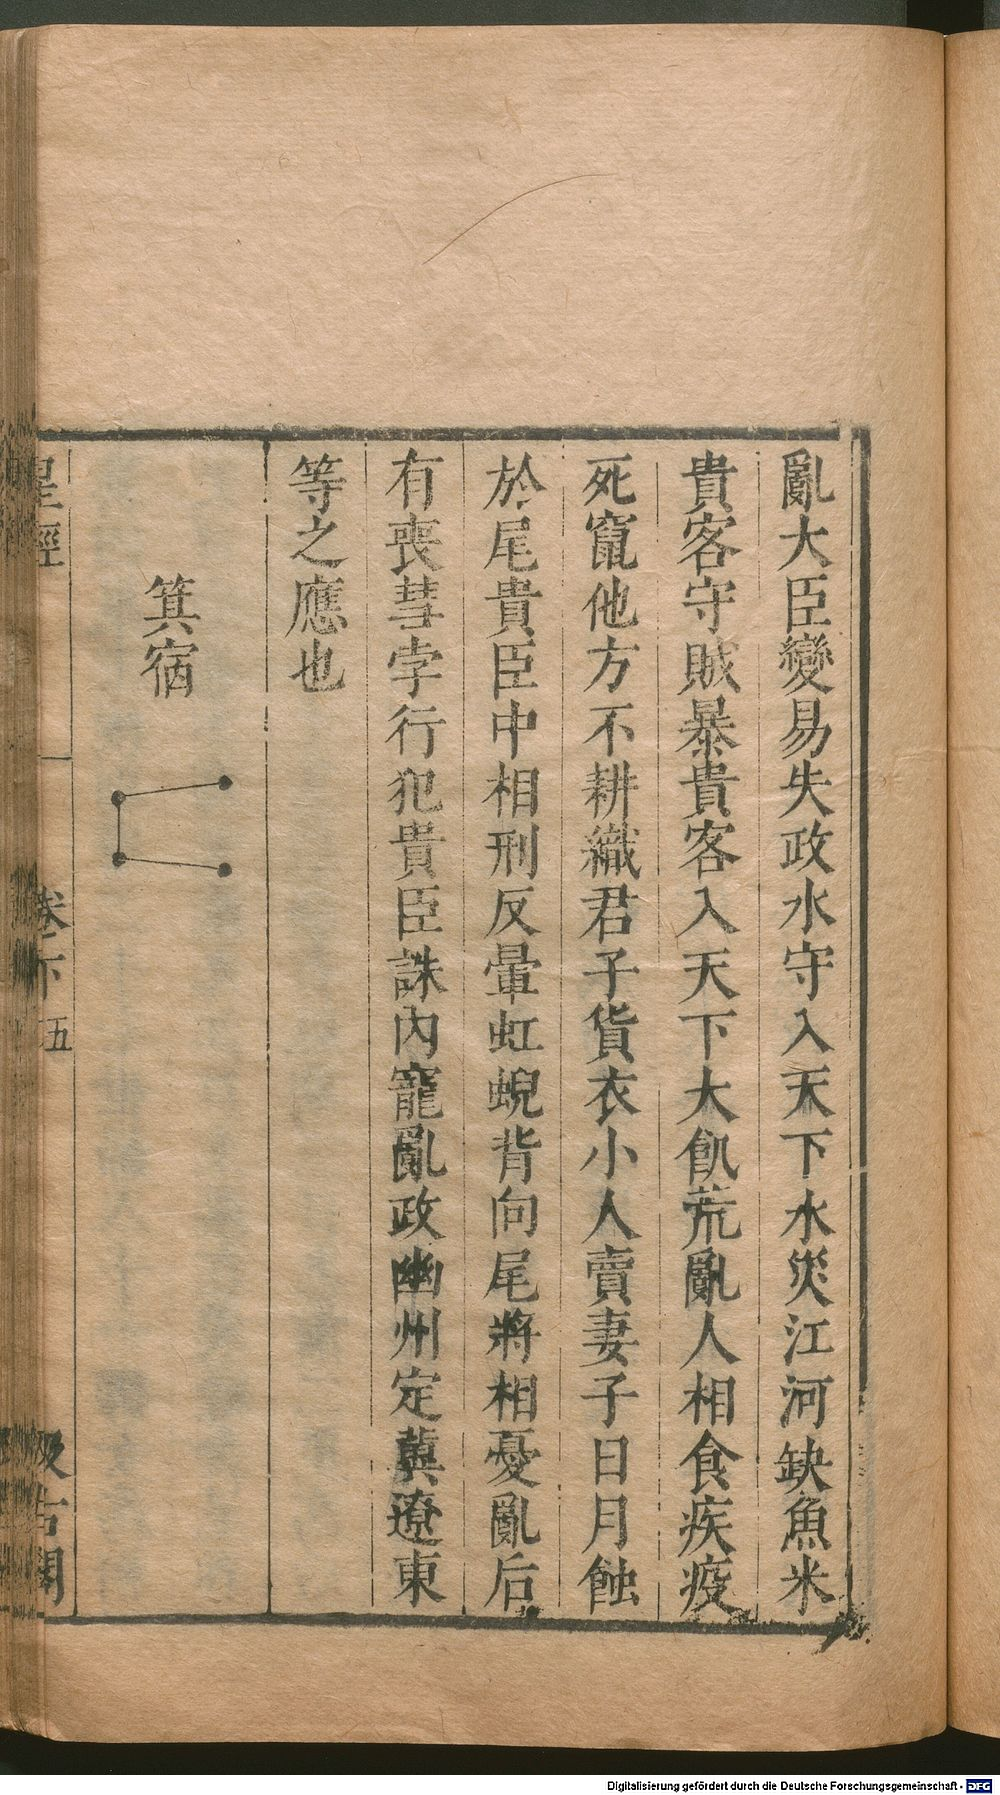 亂大臣變易失政水守入天下水災江河缺魚米
貴客守賊暴貴客入天下大飢荒亂人相食疾疫
死竄他方不耕織君子貨衣小人賣妻子日月蝕
於尾貴臣中相刑反暈虹蜺背向尾將相憂亂后
有喪彗孛行犯貴臣誅內寵亂政幽州定冀遼東
等之應也
箕宿
星經
卷下
五
汲古閣
Digitalisierung gefördert durch die Deutsche Forschungsgemeinschaft - DFG